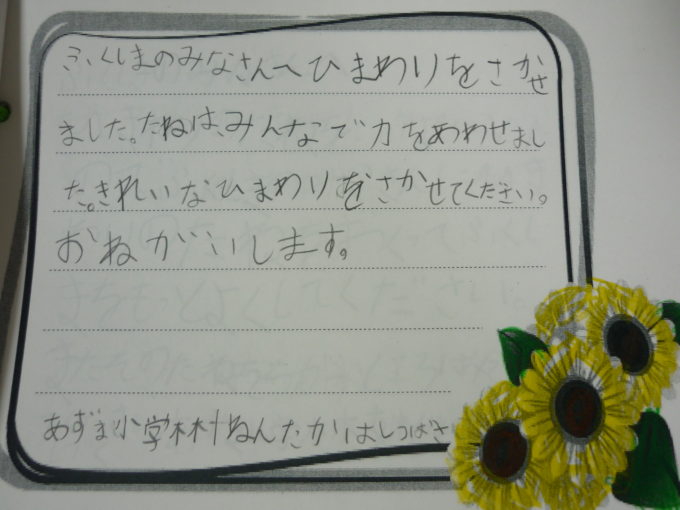 ふくしまのみなさんへひまわりをさかせ
ました。たねは、みんなで力をあわせまし
た。きれいなひまわりをさかせてください。
おねがいします。
あずま小学 ねんたかはしつばさ